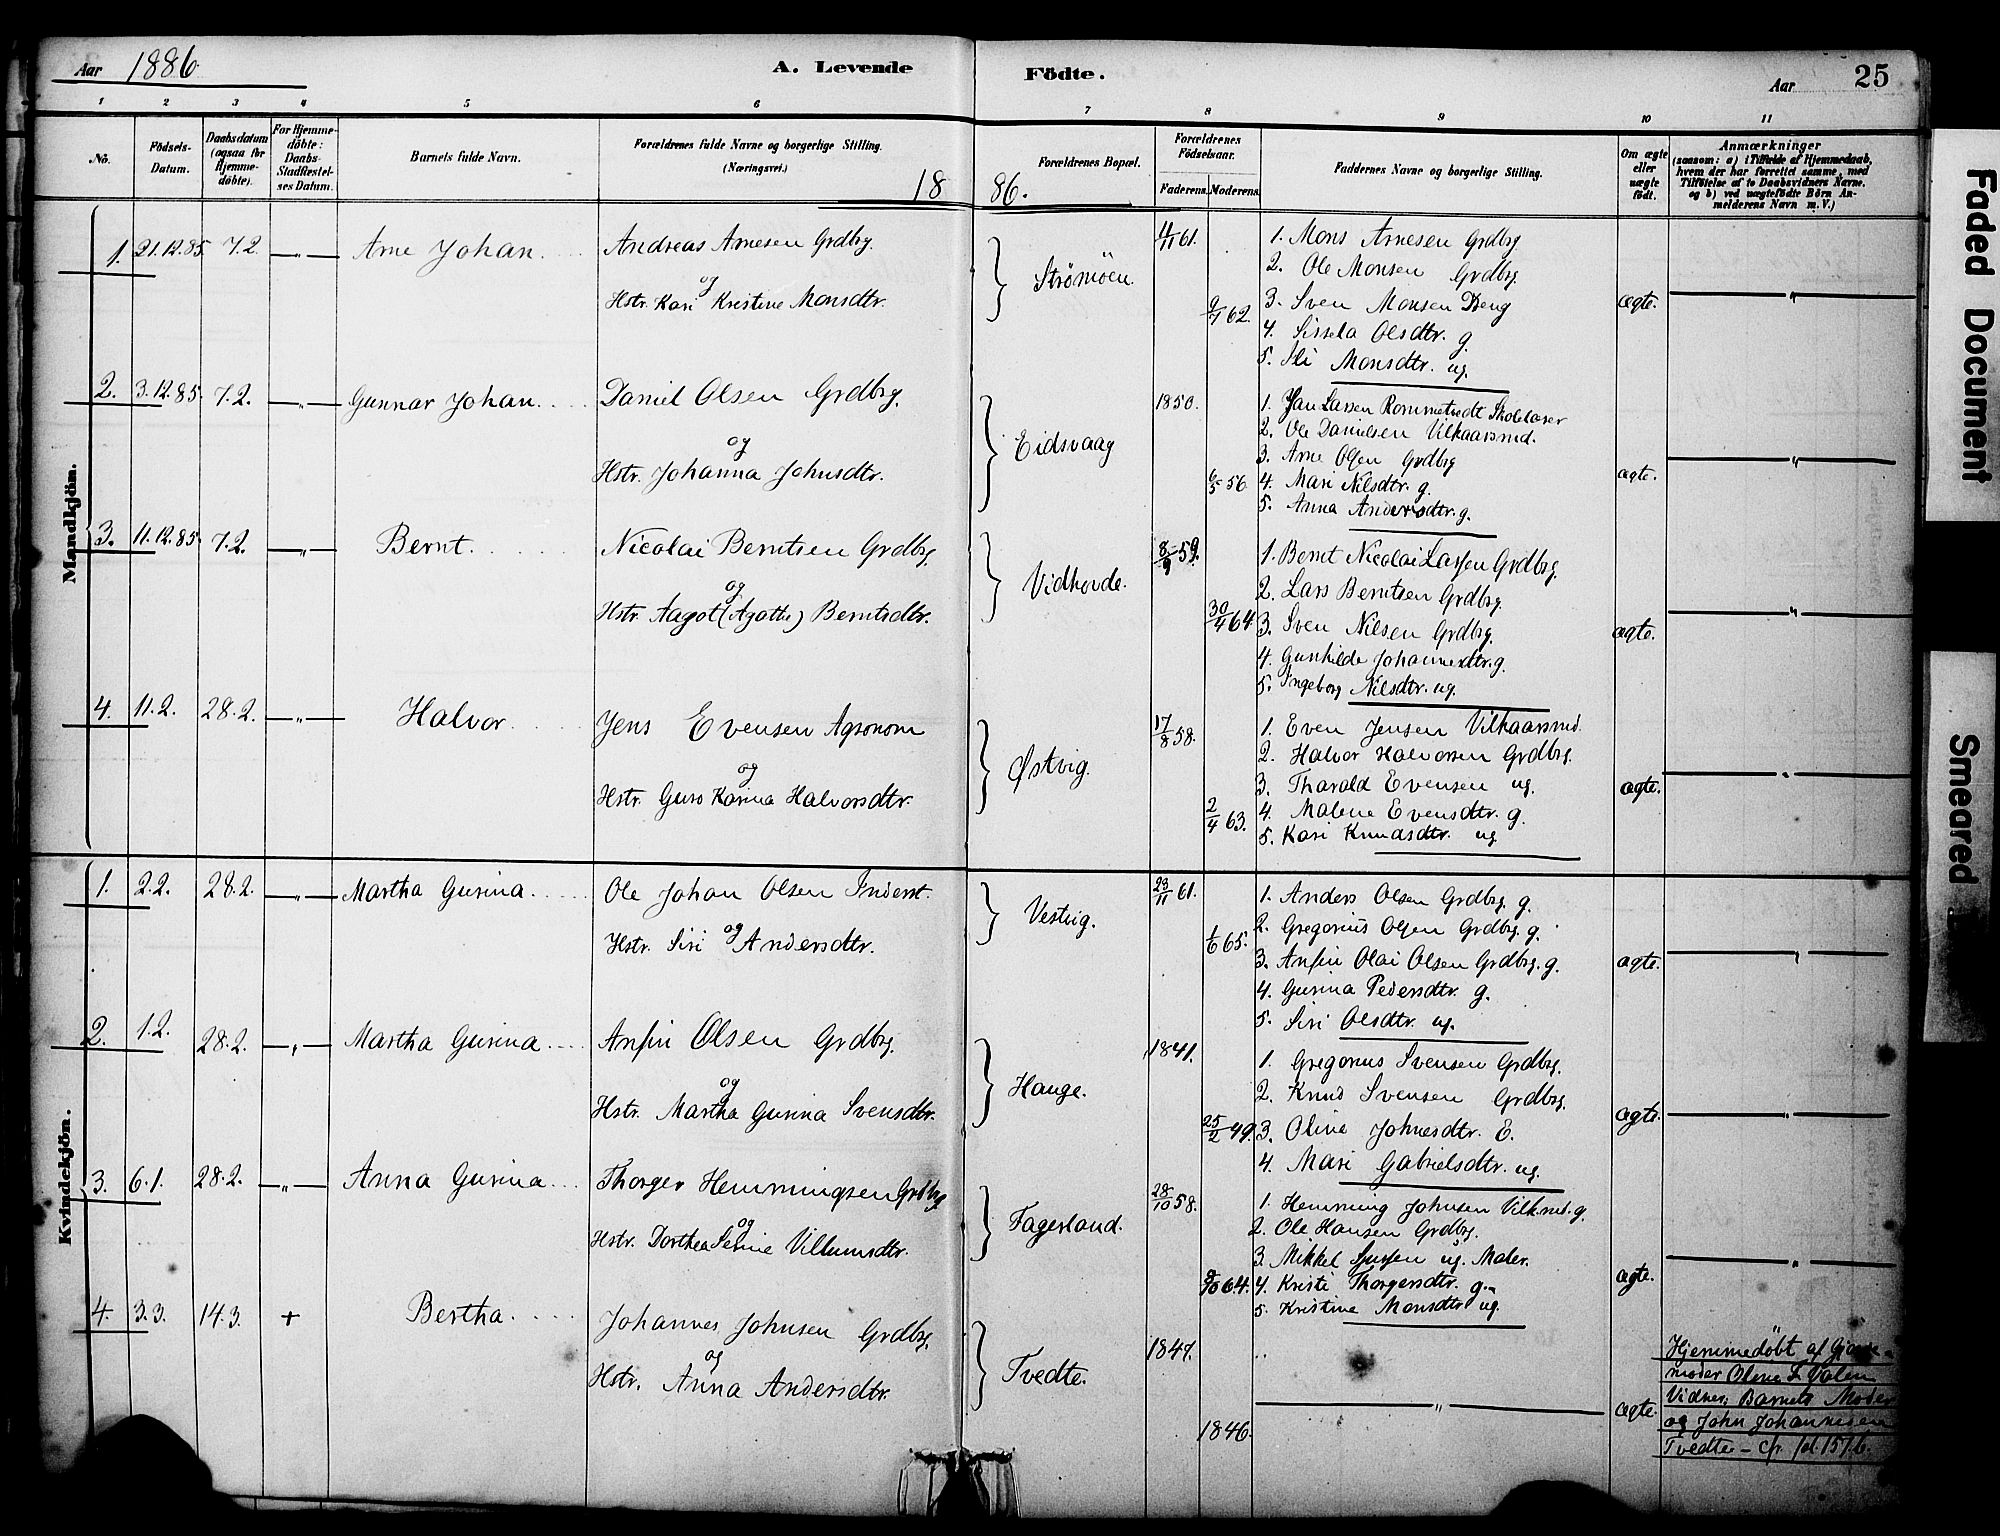 Aar 1886
A. Levende Födte.
Aar 25
1 2 3 4 5 6 7 8 9 10 11
No.
Födsels-Datum.
Daabsdatum (ogsaa for Hjemme-döbte).
For Hjemme-döbte: Daabs-Stadfæstel-ses Datum.
Barnets fulde Navn.
Forældrenes fulde Navne og borgerlige Stilling.
(Næringsvei.)
Forældrenes Bopæl.
Forældrenes Födselsaar.
Faderens. Moderens.
Faddernes Navne og borgerlige Stilling.
Om ægte eller uægte födt.
Anmærkninger
(saasom: a) i Tilfælde af Hjemmedaab,
hvem der har forrettet samme, med
Tilföielse af to Daabsvidners Navne,
og b) ved uægtefödte Börn An-
melderens Navn m. V.)
18 86.
Mandkjön.
1. 21.12.85. 7.2. —"— Arne Johan.
Andreas Arnesen Grdbrg.
og
Hstr. Kari Kristine Monsdtr.
Strømøen.
11/11 61.
9/7 62.
1. Mons Arnesen Grdbrg
2. Ole Monsen Grdbrg.
3. Sven Monsen Dreng
4. Sissela Olsdtr. g.
5. Sli Monsdtr. ug.
ægte. —"—
2. 3.12.85. 7.2. —"— Gunnar Johan.
Daniel Olsen Grdbrg.
og
Hstr. Johanna Johnsdtr.
Eidsvaag
1850.
6/5 56.
1. Jan Larsen Rommetvedt Skolelærer
2. Ole Danielsen Vilkaarsmd.
3. Arne Olsen Grdbrg
4. Mari Nilsdtr. g.
5. Anna Andersdtr. g.
ægte. —"—
3. 11.12.85. 7.2. —"— Bernt.
Nicolai Berntsen Grdbrg.
og
Hstr. Aagot (Agothe) Berntsdtr.
Vidhovde.
8/9 59.
30/4 64.
1. Bernt Nicolai Larsen Grdbrg.
2. Lars Berntsen Grdbrg.
3. Sven Nilsen Grdbrg.
4. Gunhilde Johannesdtr. g.
5. Ingeborg Nilsdtr. ug.
ægte. —"—
4. 11.2. 28.2. —"— Halvor.
Jens Evensen Agronom
og
Hstr. Guro Karina Halvorsdtr.
Østvig.
17/8 58.
2/4 63.
1. Even Jensen Vilkaarsmd.
2. Halvor Halvorsen Grdbrg.
3. Tharald Evensen ug.
4. Malene Evensdtr. g.
5. Kari Knudsdtr. ug
ægte. —"—
Kvindekjön.
1. 2.2. 28.2. —"— Martha Gurina.
Ole Johan Olsen Inderst.
og
Hstr. Siri Andersdtr.
Vestvig.
23/11 61.
1/6 65.
1. Anders Olsen Grdbrg. g.
2. Gregorius Olsen Grdbrg. g.
3. Anfin Olai Olsen Grdbrg. g.
4. Gurina Pedersdtr. g.
5. Siri Olsdtr. ug.
ægte. —"—
2. 1.2. 28.2. —"— Martha Gurina.
Anfin Olsen Grdbrg.
og
Hstr. Martha Gurina Svensdtr.
Hauge.
1841.
25/2 49.
1. Gregorius Svensen Grdbrg.
2. Knud Svensen Grdbrg.
3. Oline Johnesdtr. E.
4. Mari Gabrielsdtr. ug.
ægte. —"—
3. 6.1. 28.2. —"— Anna Gurina.
Thorger Hemmingsen Grdbrg
og
Hstr. Dorthea Serine Villumsdtr.
Fagerland.
28/10 58.
9/10 64.
1. Hemming Johnsen Vilk.md. g.
2. Ole Hansen Grdbrg.
3. Mikkel Sjursen ug. Maler.
4. Kristi Thorgersdtr. g.
5. Kristine Monsdtr ug.
ægte. —"—
4. 3.3. 14.3. + Bertha.
Johannes Johnsen Grdbrg.
og
Hstr. Anna Andersdtr.
Tvedte.
1847.
1846.
—"—
ægte.
Hjemmedøbt af Gjorde-
moder Olene F. Valen
Vidner, Barnets Moder
og John Johannesen
Tvedte – cfr. fol. 157.6.
Faded Document
Smeared